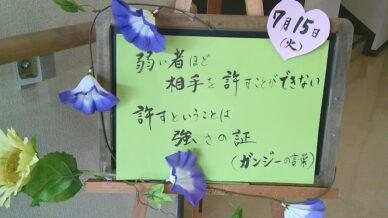 7月15日
(火)
弱い者ほど
相手を許すことができない
許すということは
強さの証
(ガンジーの言葉)